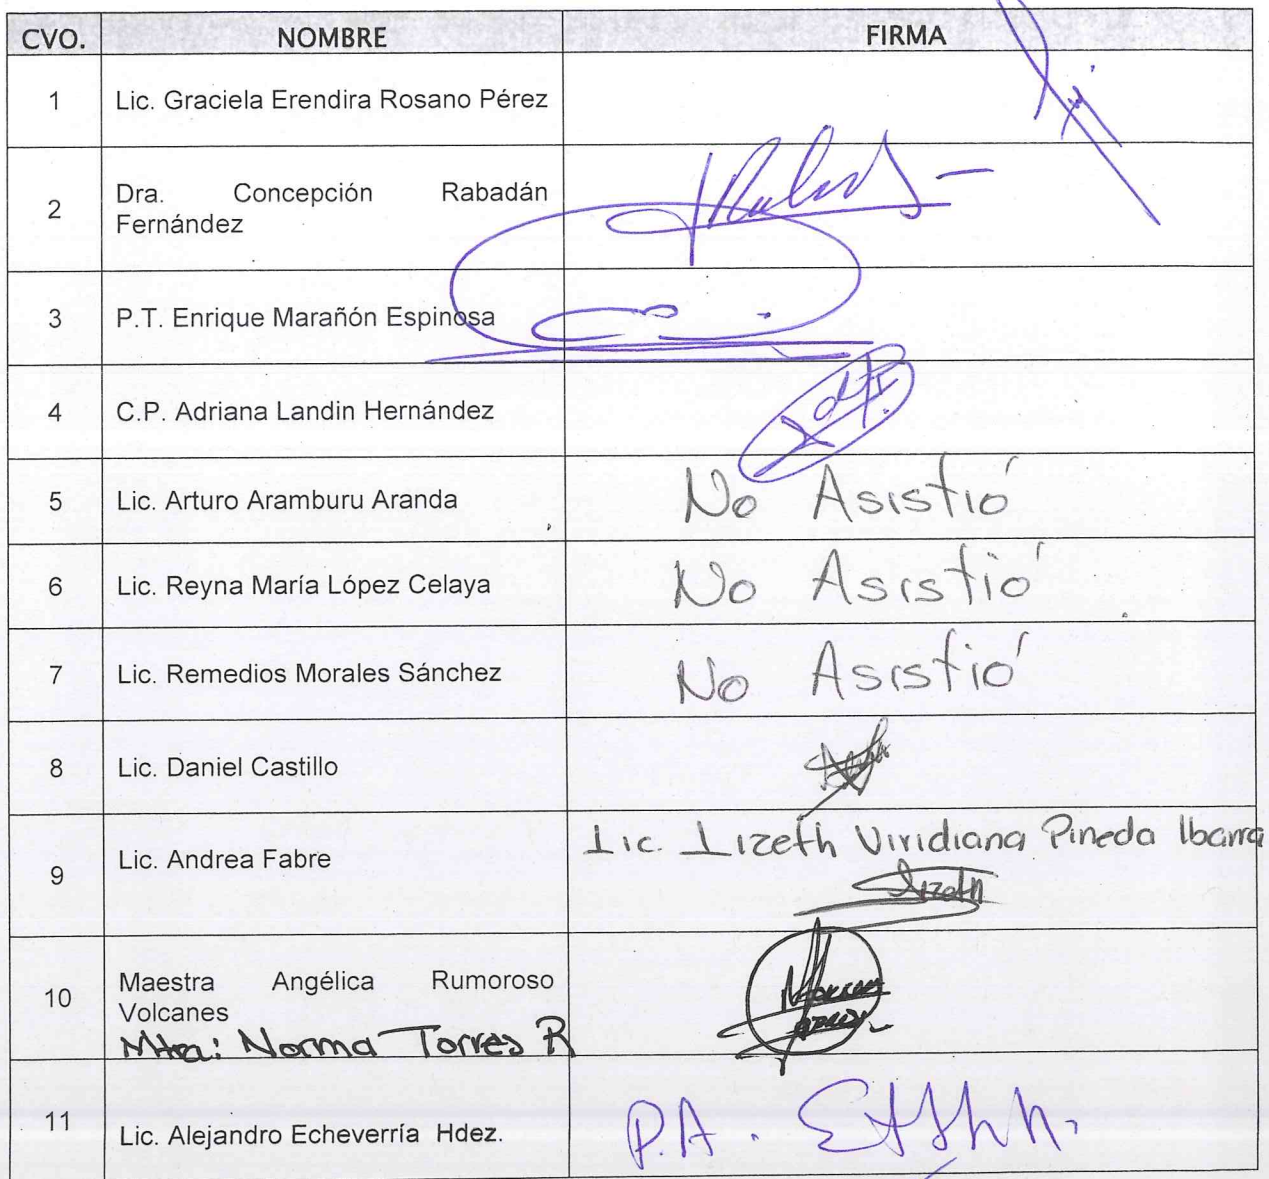 CVO. NOMBRE FIRMA
1 Lic. Graciela Erendira Rosano Pérez
2 Dra. Concepción Rabadán
Fernández
3 P.T. Enrique Marañón Espinosa
4 C.P. Adriana Landin Hernández
5 Lic. Arturo Aramburu Aranda No Asistió
6 Lic. Reyna María López Celaya No Asistió
7 Lic. Remedios Morales Sánchez No Asistió
8 Lic. Daniel Castillo
9 Lic. Andrea Fabre Lic. Lizeth Viridiana Pineda Ibarra
Lizeth
10 Maestra Angélica Rumoroso
Volcanes
Mtra: Norma Torres R
11 Lic. Alejandro Echeverría Hdez. P.A.